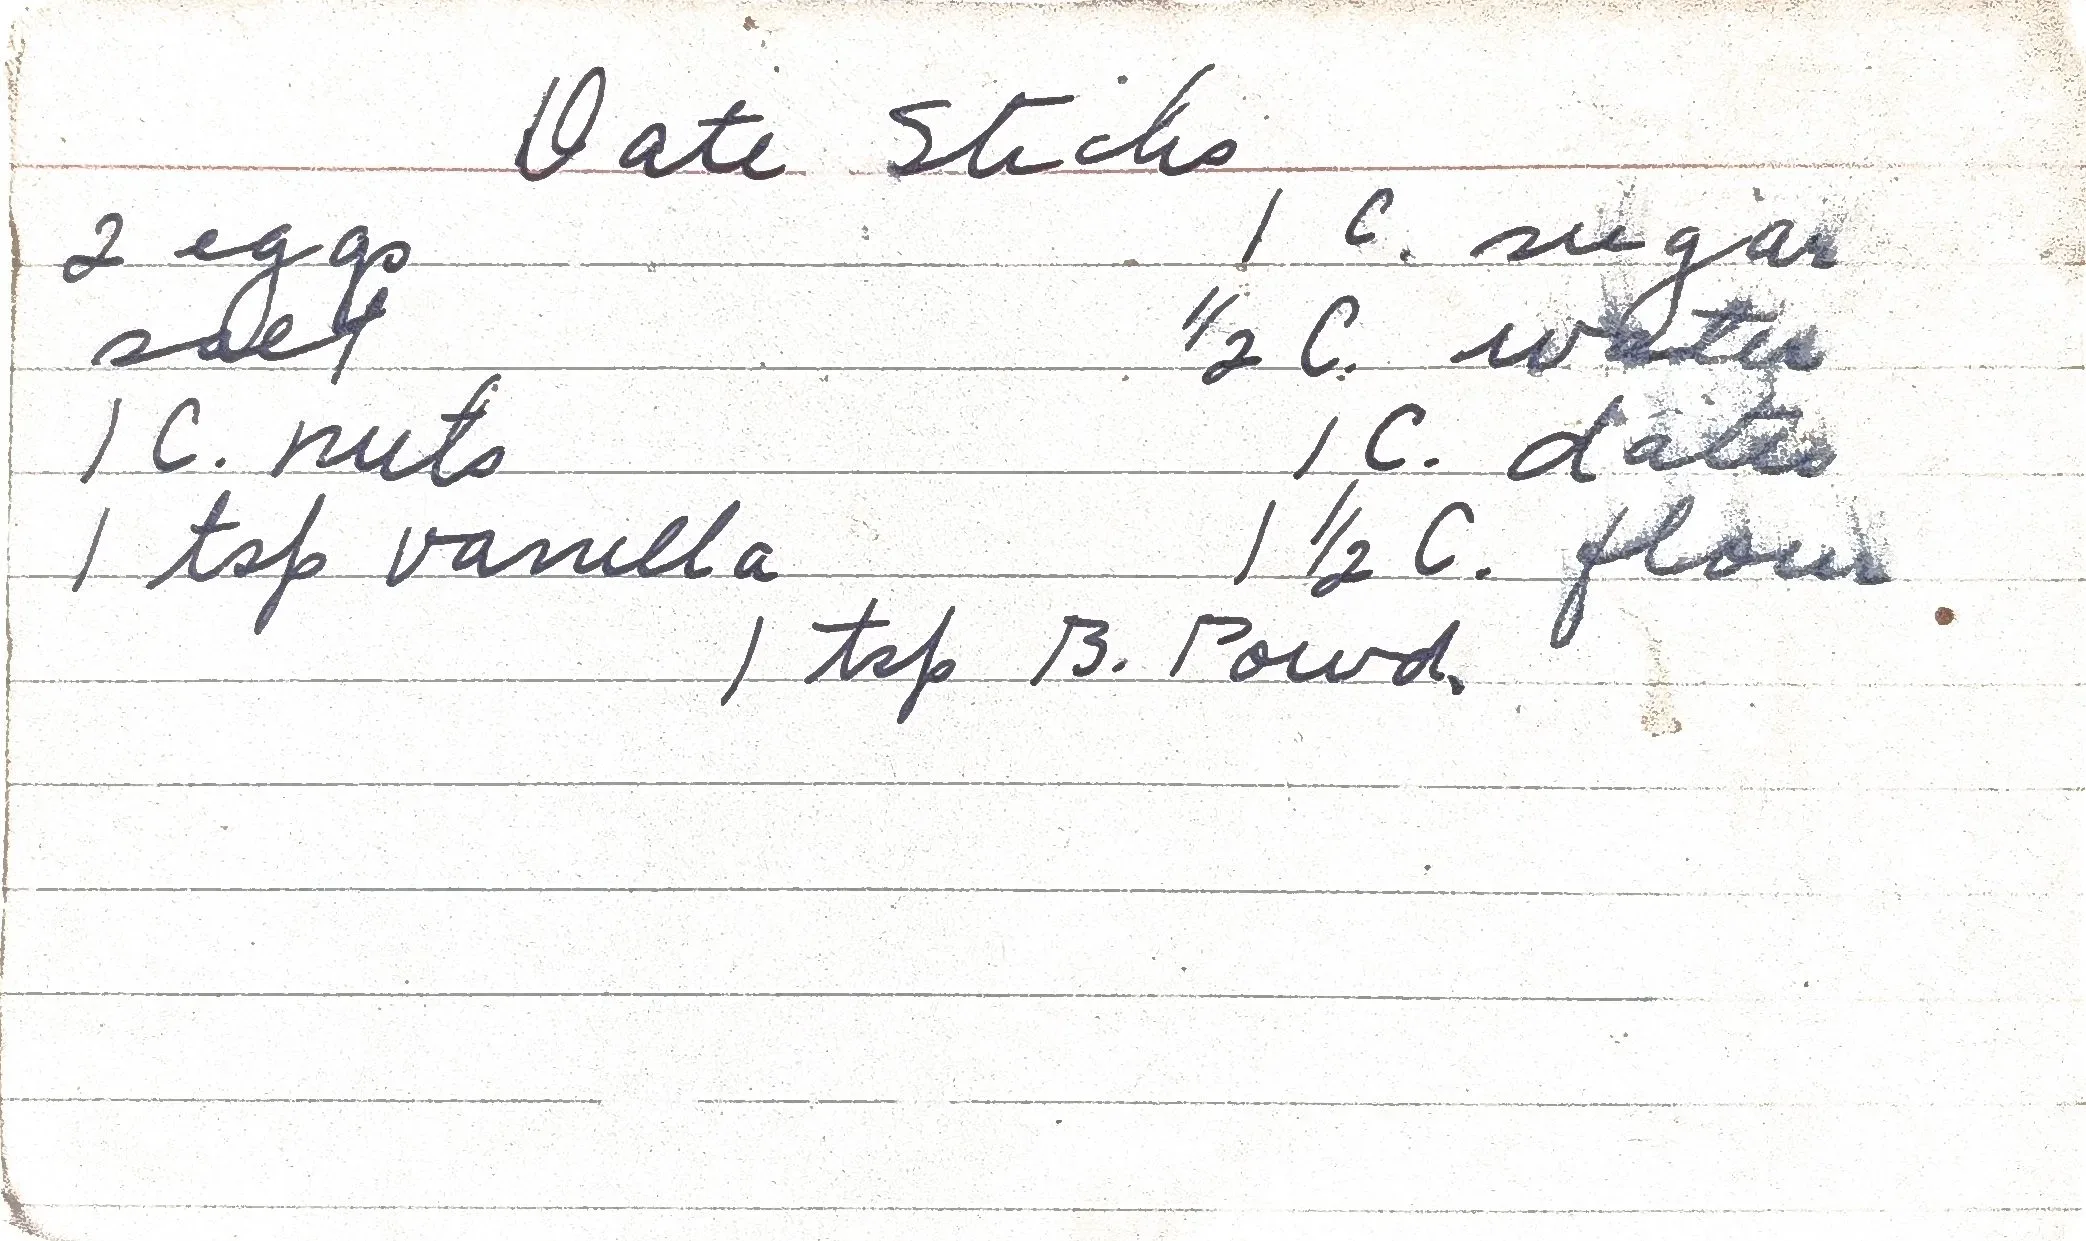 Date Sticks
2 eggs 1 C. sugar
salt 1/2 C. water
1 C. nuts 1 C. dates
1 tsp vanilla 1 1/2 C. flour
1 tsp B. Powd.